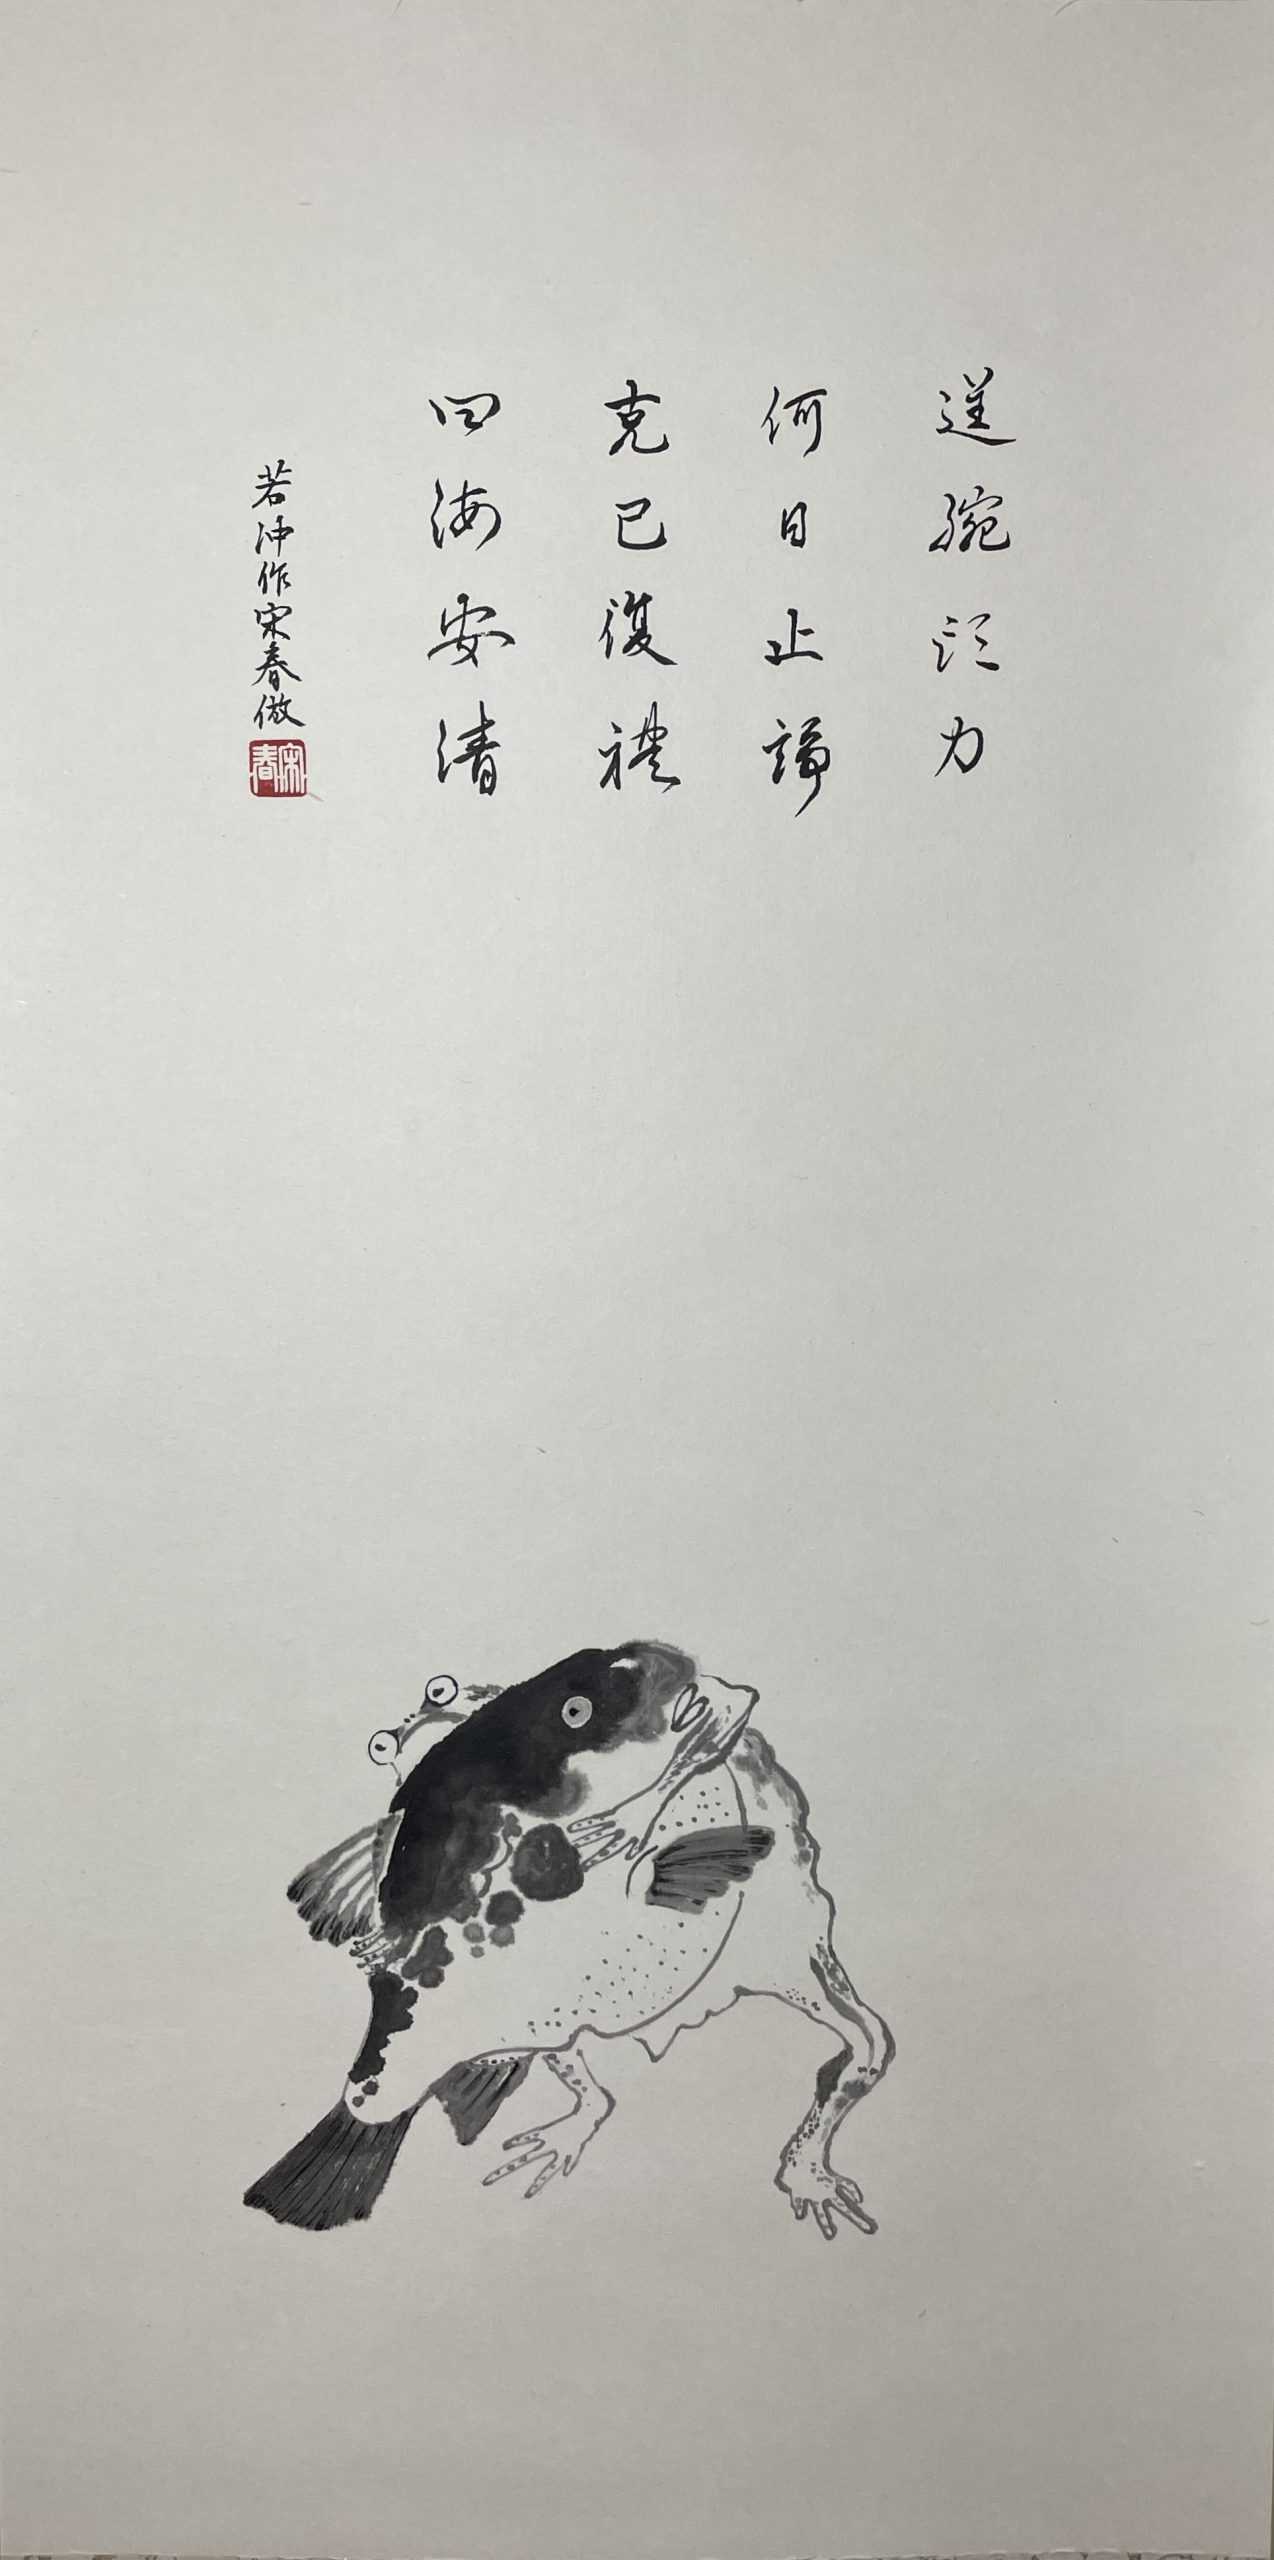 逞腕力
何日止諍
克己復禮
四海安清
若冲作宋春倣
宋春